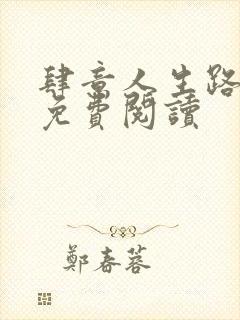 肆意人生路
免費閱讀
鄭春蓉